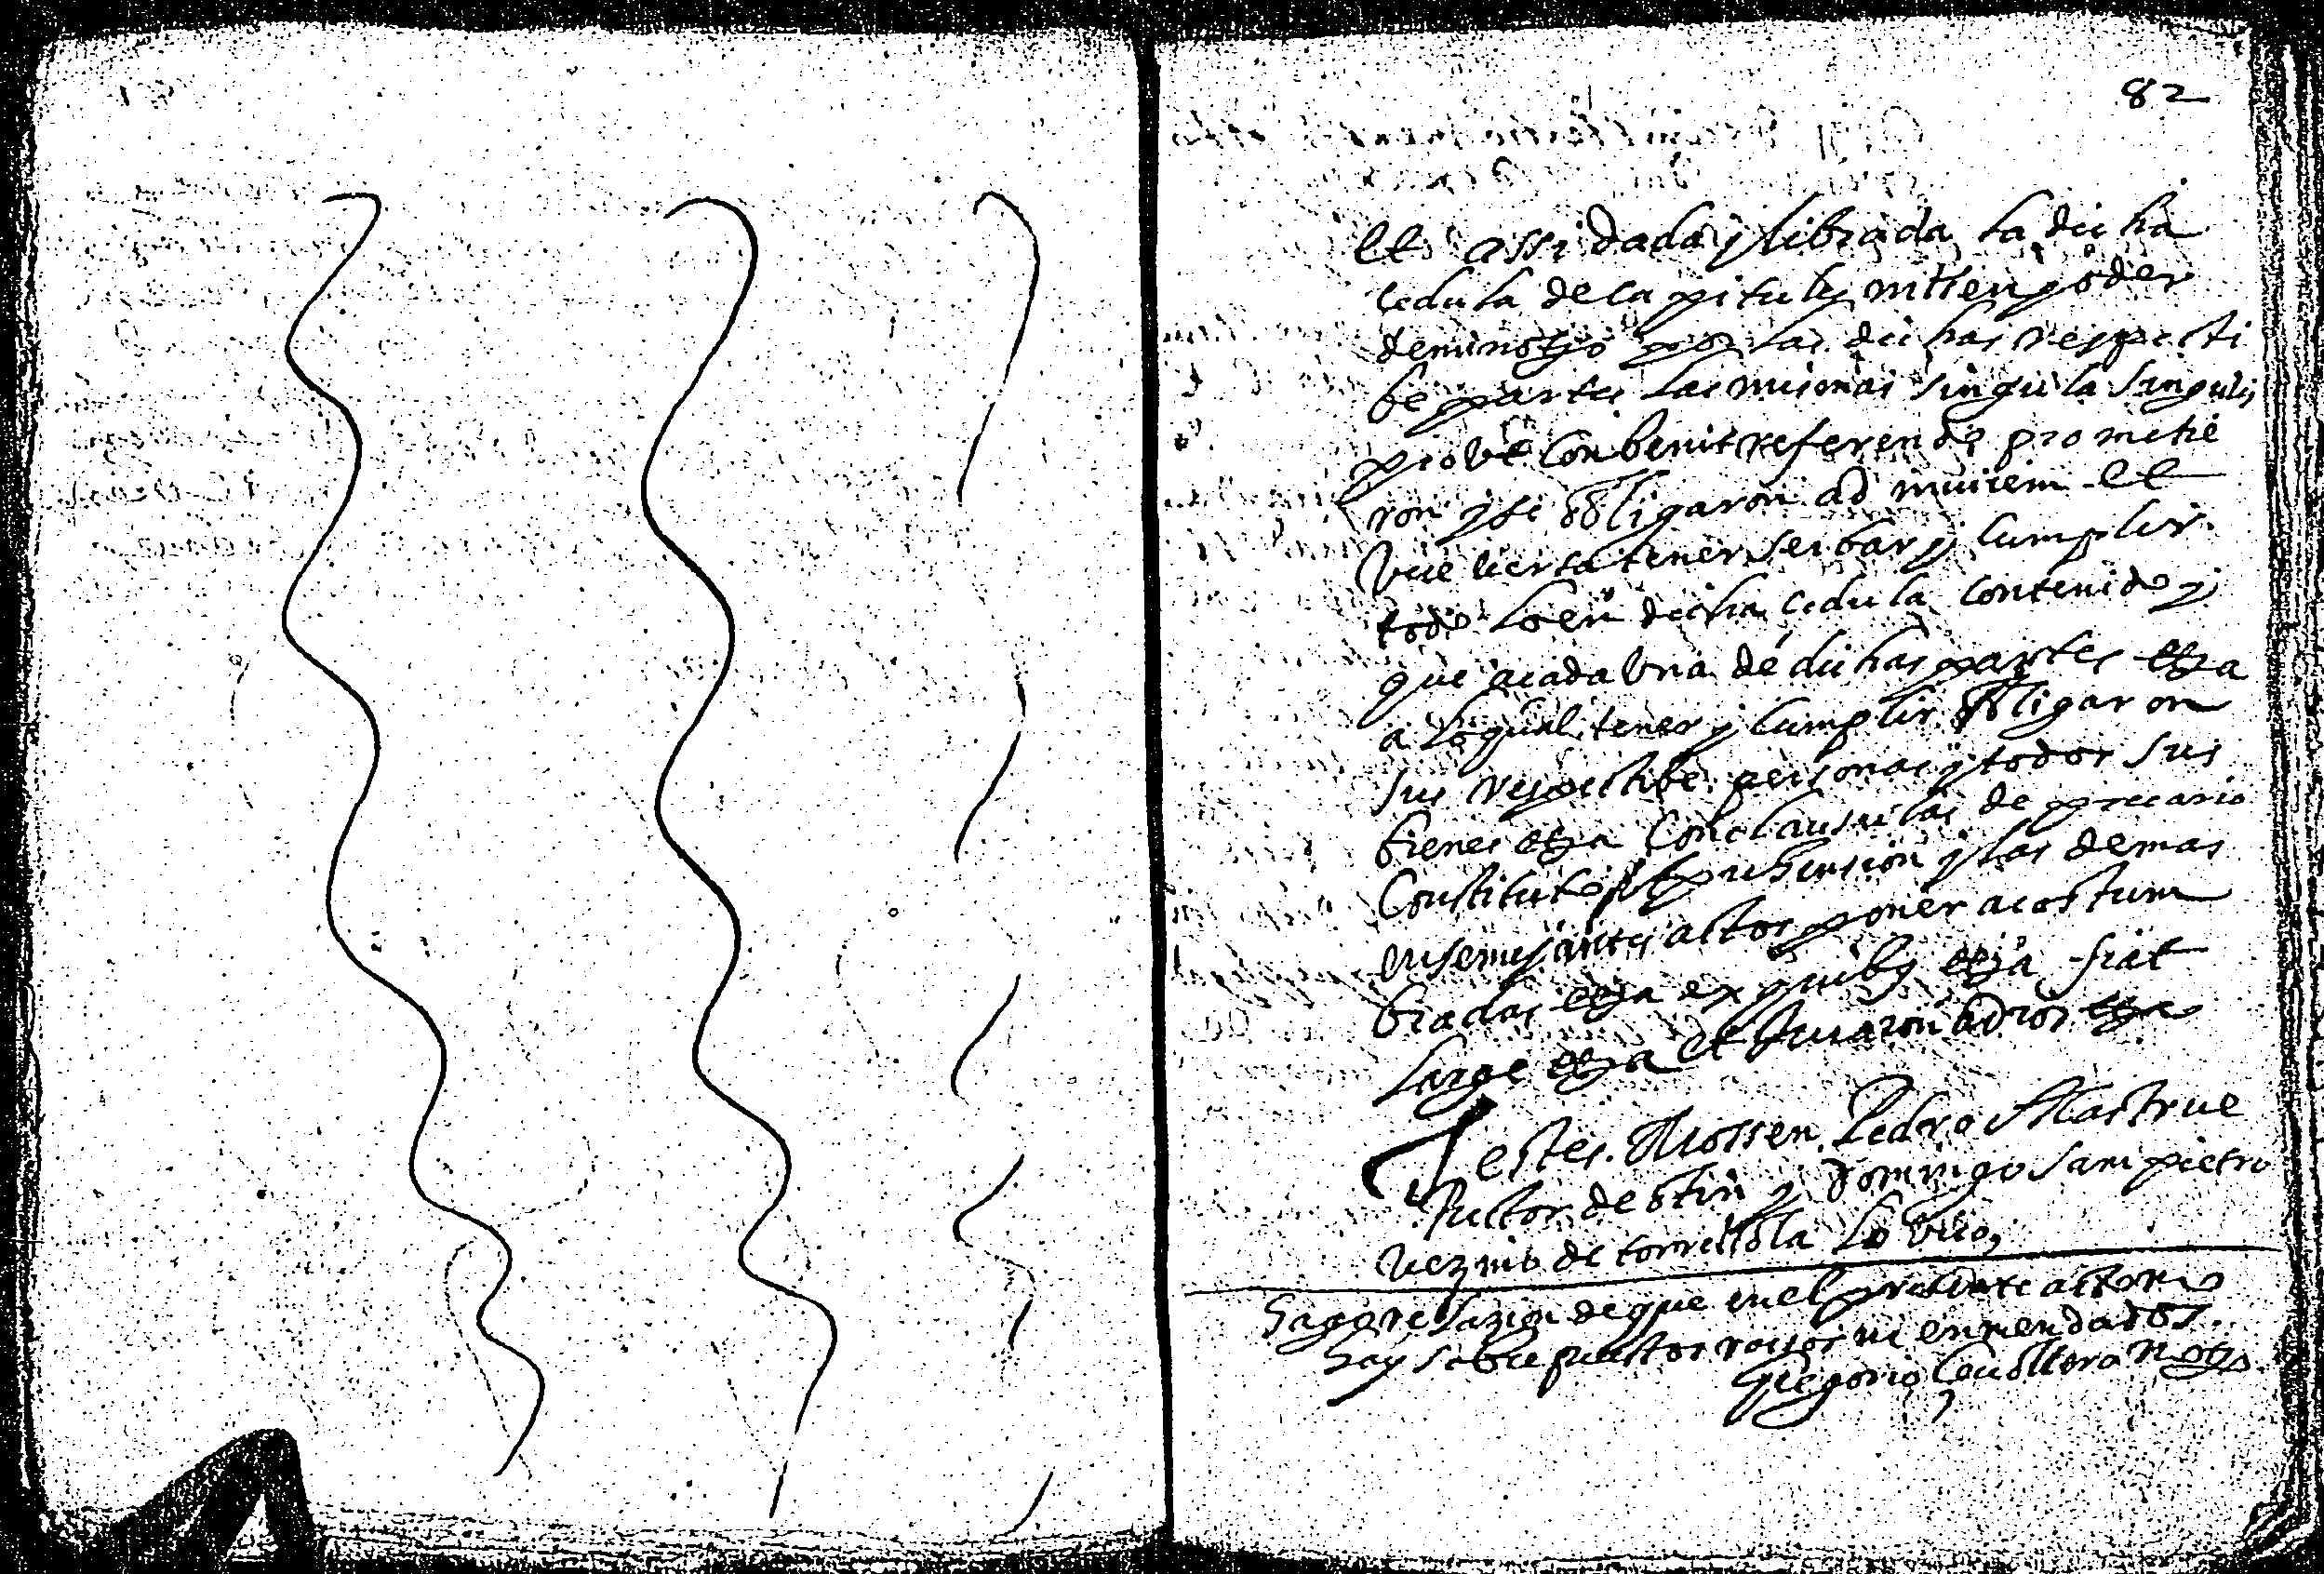 82
et assi dada y librada la dicha
cedula de capitulos en poder
de mi notº por las dichas respecti
be partes las mismas singula singulis
prout conbenit referendo prometie
ron y se obligaron ad invicem et
vice versa tener serbar y cumplir
todo lo en dicha cedula contenido y
que a cada una de dichas partes etza
a lo qual tener y cumplir obligaron
sus respectibe personas y todos sus
bienes etza con clausulas de precario
constituto aprehension y las demas
en semejantes actos poner acostum
bradas etza ex quibus etza fiat
large etza et juraron a Dios etza
Testes Mossen Pedro
Rector de y Domingo Sampietro
vezino de torre
Hago relazion de que en el presente acto no
hay sobrepuestos rasos ni enmendados.
Gregorio notº